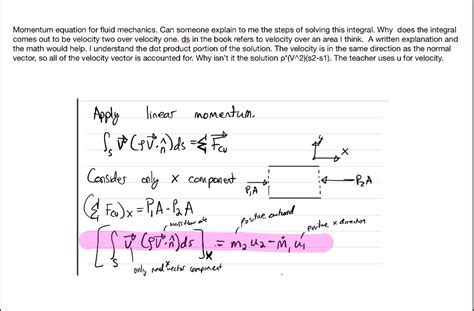 Momentum equation for fluid mechanics. Can someone explain to me the steps of solving this integral. Why does the integral
comes out to be velocity two over velocity one. ds in the book refers to velocity over an area I think. A written explanation and
the math would help. I understand the dot product portion of the solution. The velocity is in the same direction as the normal
vector, so all of the velocity vector is accounted for. Why isn't it the solution p*(V^2)(s2-s1). The teacher uses u for velocity.
Apply linear momentum.
∫s V⃗ (ρV⃗·n̂)ds = Σ F⃗cv
y
x
Considers only x component
P₁A
P₂A
(Σ Fcv)x = P₁A - P₂A
mass flow rate
positive outward
positive x direction
[∫s V⃗ (ρV⃗·n̂)ds]x = ṁ₂u₂ - ṁ₁u₁
only need x vector component